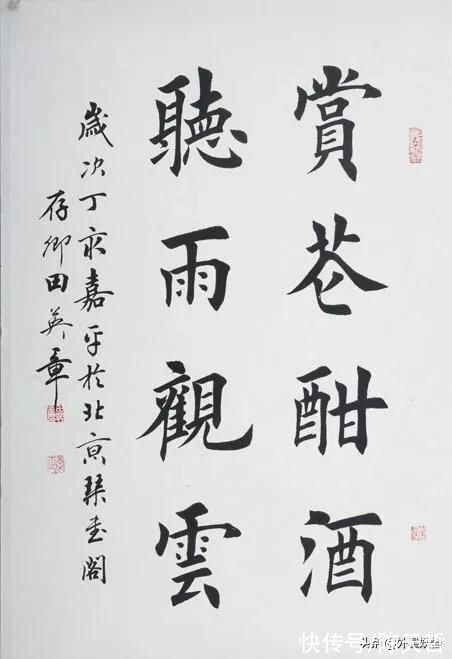 賞花酣酒
聽雨觀雲
歲次丁亥嘉平於北京琴書閣
存卿田英章
快传号
头条